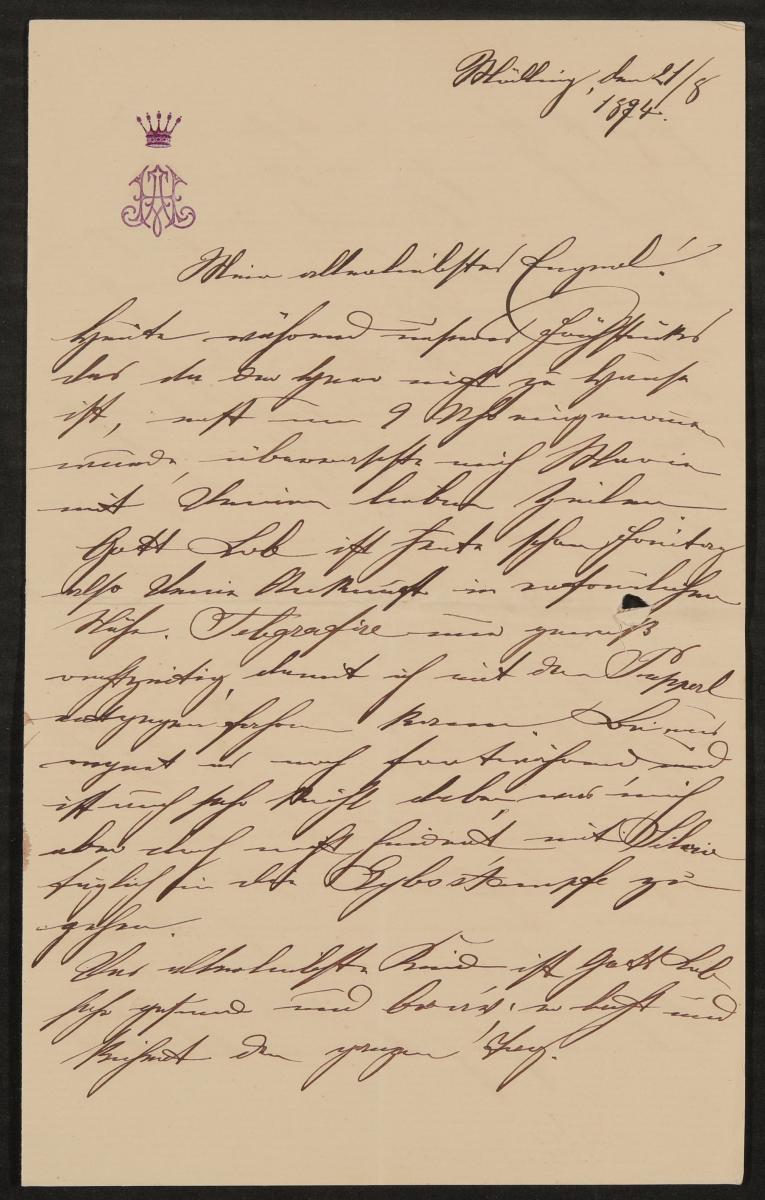 Mödling, den 21/8
1894.
Mein allerliebster Engerl!
Heute während unseres Frühstückes
das da der Herr nicht zu Hause
ist, erst um 9 Uhr eingenommen
wurde, überraschte mich Marie
mit Deinen lieben Zeilen.
Gott Lob ist heute schon
also Deine Ankunft in
Nähe. Telegrafire nur gewiß
rechtzeitig, damit ich mit dem Pupperl
entgegenfahren kann. Bei uns
regnet es noch fortwährend und
ist auch sehr kühl dabei, was mich
aber doch nicht hindert mit
täglich in die zu
gehen.
Das allerliebste Kind ist Gott Lob
sehr gesund und brav; er lacht und
den ganzen Tag.